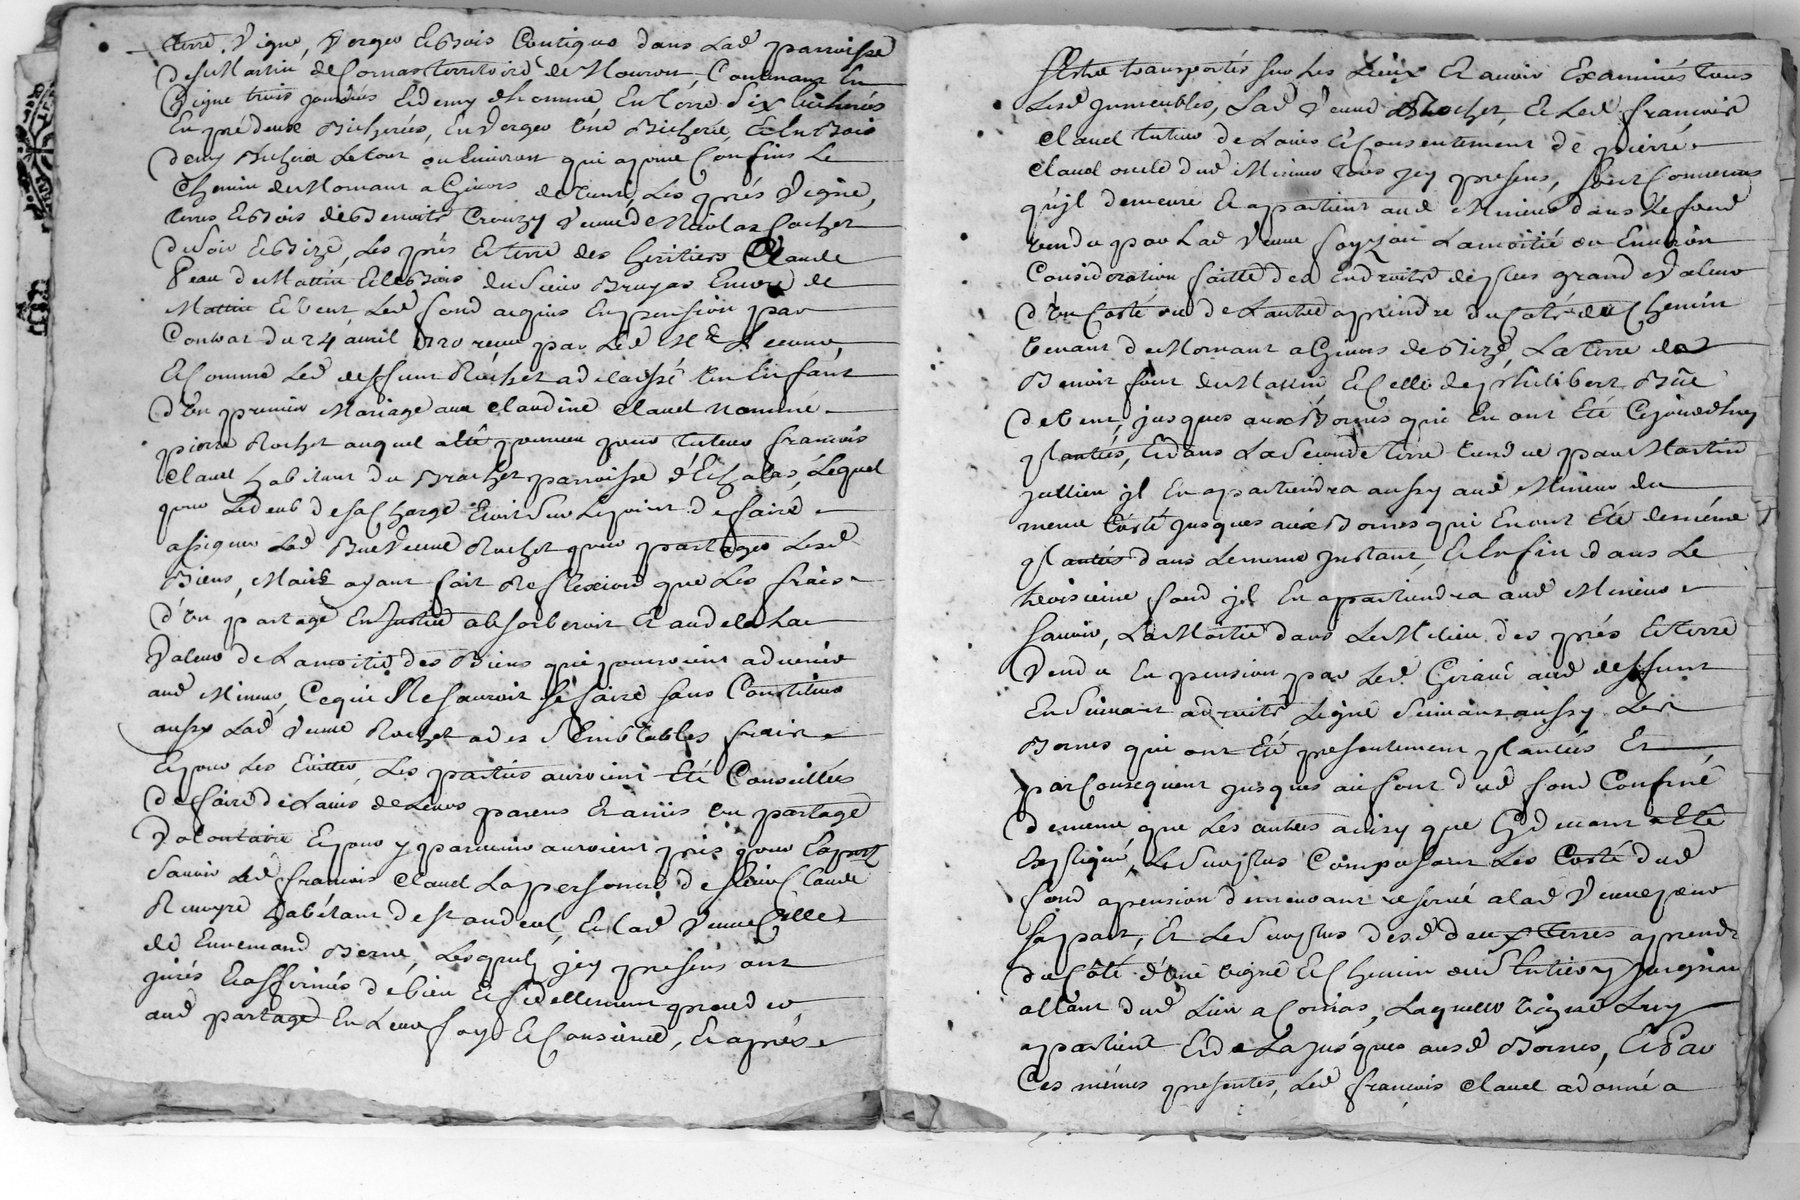 terre, vigne, verger et bois contigus dans lad parroisse
de st Martin de Cornas territoire de Mouron Contenant en
vigne trois journées et demy d'homme en terre six bicherées
en pré deux Bicherées, en verger une Bicherée et en Bois
demy Bicherée le tout ou environ qui a pour Confins le
Chemin de Mornant a Givors de vent, les prés vigne,
terres et bois de Benoite Crouzy veuve de Nicolas Cochet
de soir et Bize, les prés et terre des heritiers Claude
Peau de Mattin et le Bois du sieur Bruyas Encore de
Mattin et vent led fond acquis en pension par
Contrat du 24 avril 1720 receu par led Me
et comme led deffunt Rochet a delaissé un enfant
d'un premier Mariage avec Claudine Clavel nommé
pierre Rochet auquel a eté pourveu pour tuteur francois
Clavel habitant du Brochet parroisse d'Echalas, lequel
pour le deub de sa Charge etoit sur le point de faire
assigner lad Bue veuve Rochet pour partager lesd
Biens, Mais ayant fait Reflexion que les frais
d'un partage en justice absorberoit et au dela la
valeur de la moitié des Biens qui pourroient advenir
aud Mineur, Ce qui Ne sauroit se faire sans Constituer
aussy lad veuve Rochet a des semblables frais
et pour les eviter, les parties auroient eté Conseillées
de faire de l'avis de leurs parens et amis un partage
volontaire et pour y parvenir auroient pris pour Expert
savoir led francois Clavel la personne de sieur Claude
habitant de st andeol, et lad veuve Celle
de Ennemond Berne, lesquels icy presens ont
jurés et affirmés de bien et fidellement proceder
aud partage en leur foy et Consience, et aprés
s'estre transportés sur les lieux et avoir Examinés tous
lesd jmmeubles, lad veuve Rochet, et led francois
Clavel tuteur de l'avis et Consentement de pierre
Clavel oncle dud Mineur tous jcy presens, sont Convenus
qu'jl demeure et apartient aud Mineur dans le fond
vendu par lad veuve la moitié ou Environ
Consideration faitte des Endroits de plus grand valeur
d'un Costé que de l'autre a prendre du Coté du Chemin
tenant de Mornant a Givors de bize, la terre de
Benoit four de Mattin et celle de philibert Büe
de vent, jusques aux Bornes qui en ont Eté Cejourdhuy
plantées, et dans la seconde terre vendue par Martin
jullien jl en apartiendra aussy aud Mineur du
meme Costé jusques aux Bornes qui en ont Eté de méme
plantées dans le meme jnstant, et enfin dans le
troisieme fond jl en apartiendra aud Mineur
savoir, la Moitié dans le Milieu des prés et terre
vendu en pension par led Giraud aud deffunt
en suivant a droite ligne suivant aussy les
Bornes qui ont Eté presentement plantées et
par Consequent jusques au font dud fond Confiné
de meme que les autres ainsy que Cy devant a Eté
Expliqué, le surplus Composant les Costé dud
fond a pension demeurant reservé a lad veuve pour
sa part, et le surplus desd deux terres a prendre
du Côté d'une vigne et Chemin
allant dud lieu a Cornas, laquelle vigne luy
apartient et de la jusques ausd Bornes, et Par
Ces mémes presentes, led francois Clavel a donné a